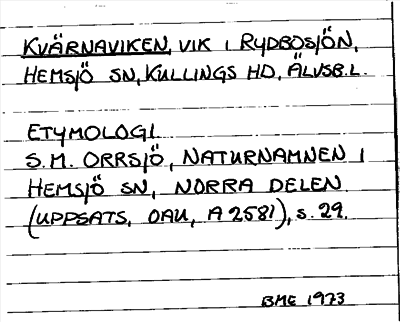 KVÄRNAVIKEN, VIK I RYDBOSJÖN,
HEMSJÖ SN, KULLINGS HD, ÄLVSB.L.
ETYMOLOGI
S.M. ORRSJÖ, NATURNAMNEN I
HEMSJÖ SN, NORRA DELEN
(UPPSATS, OAU, A 2581), S. 29.
BME 1973